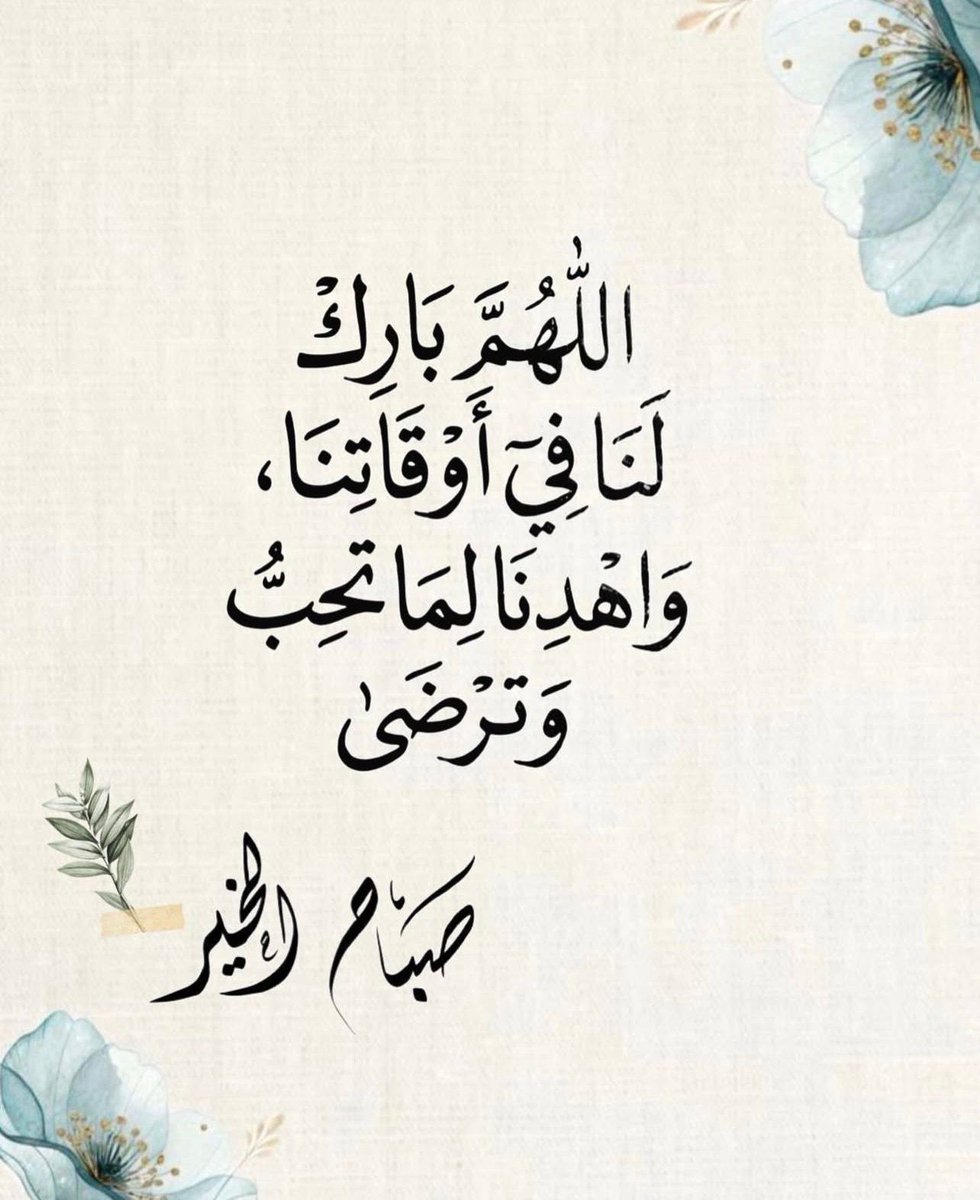 اللّٰهُمَّ بَارِكْ
لَنَا فِيٓ أَوْقَاتِنَا،
وَاهْدِنَا لِمَا تحِبُّ
وَترْضَىٰ
صباح الخير